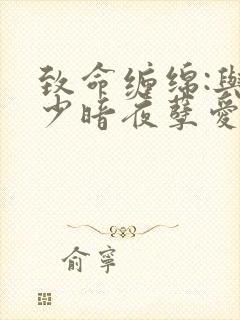 致命缠绵:与
少暗夜孽爱
俞宁